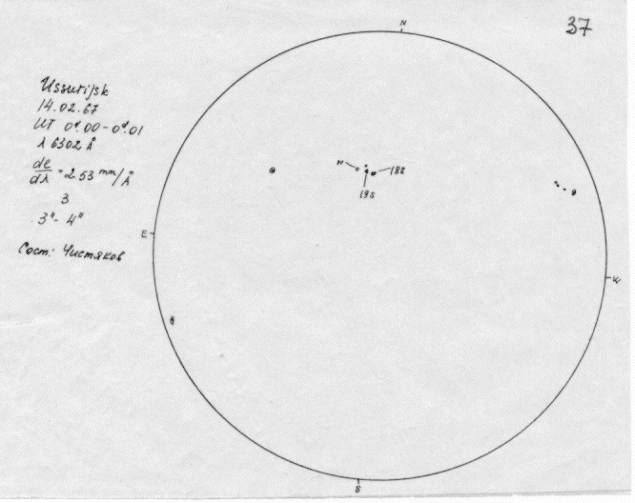 37
N
Ussurijsk
14.02.67
UT 0ʰ.00 - 0ʰ.01
λ 6302 Å
dl/dλ = 2.53 mm/Å
3
3" - 4"
Сост: Чистяков
N
18S
19S
E
W
S